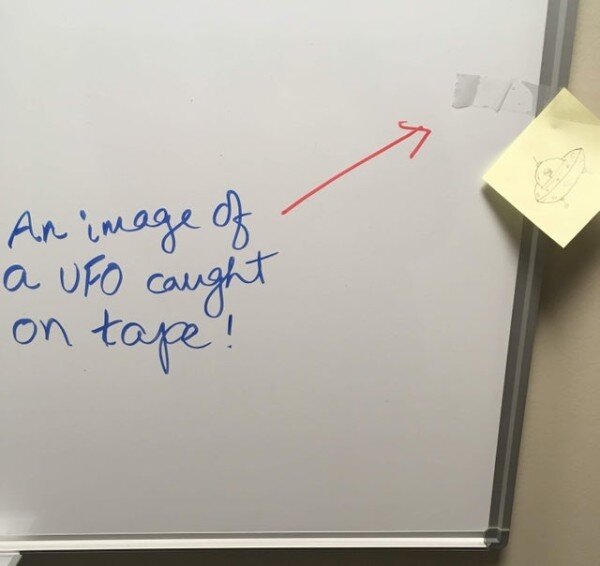 An image of
a UFO caught
on tape!